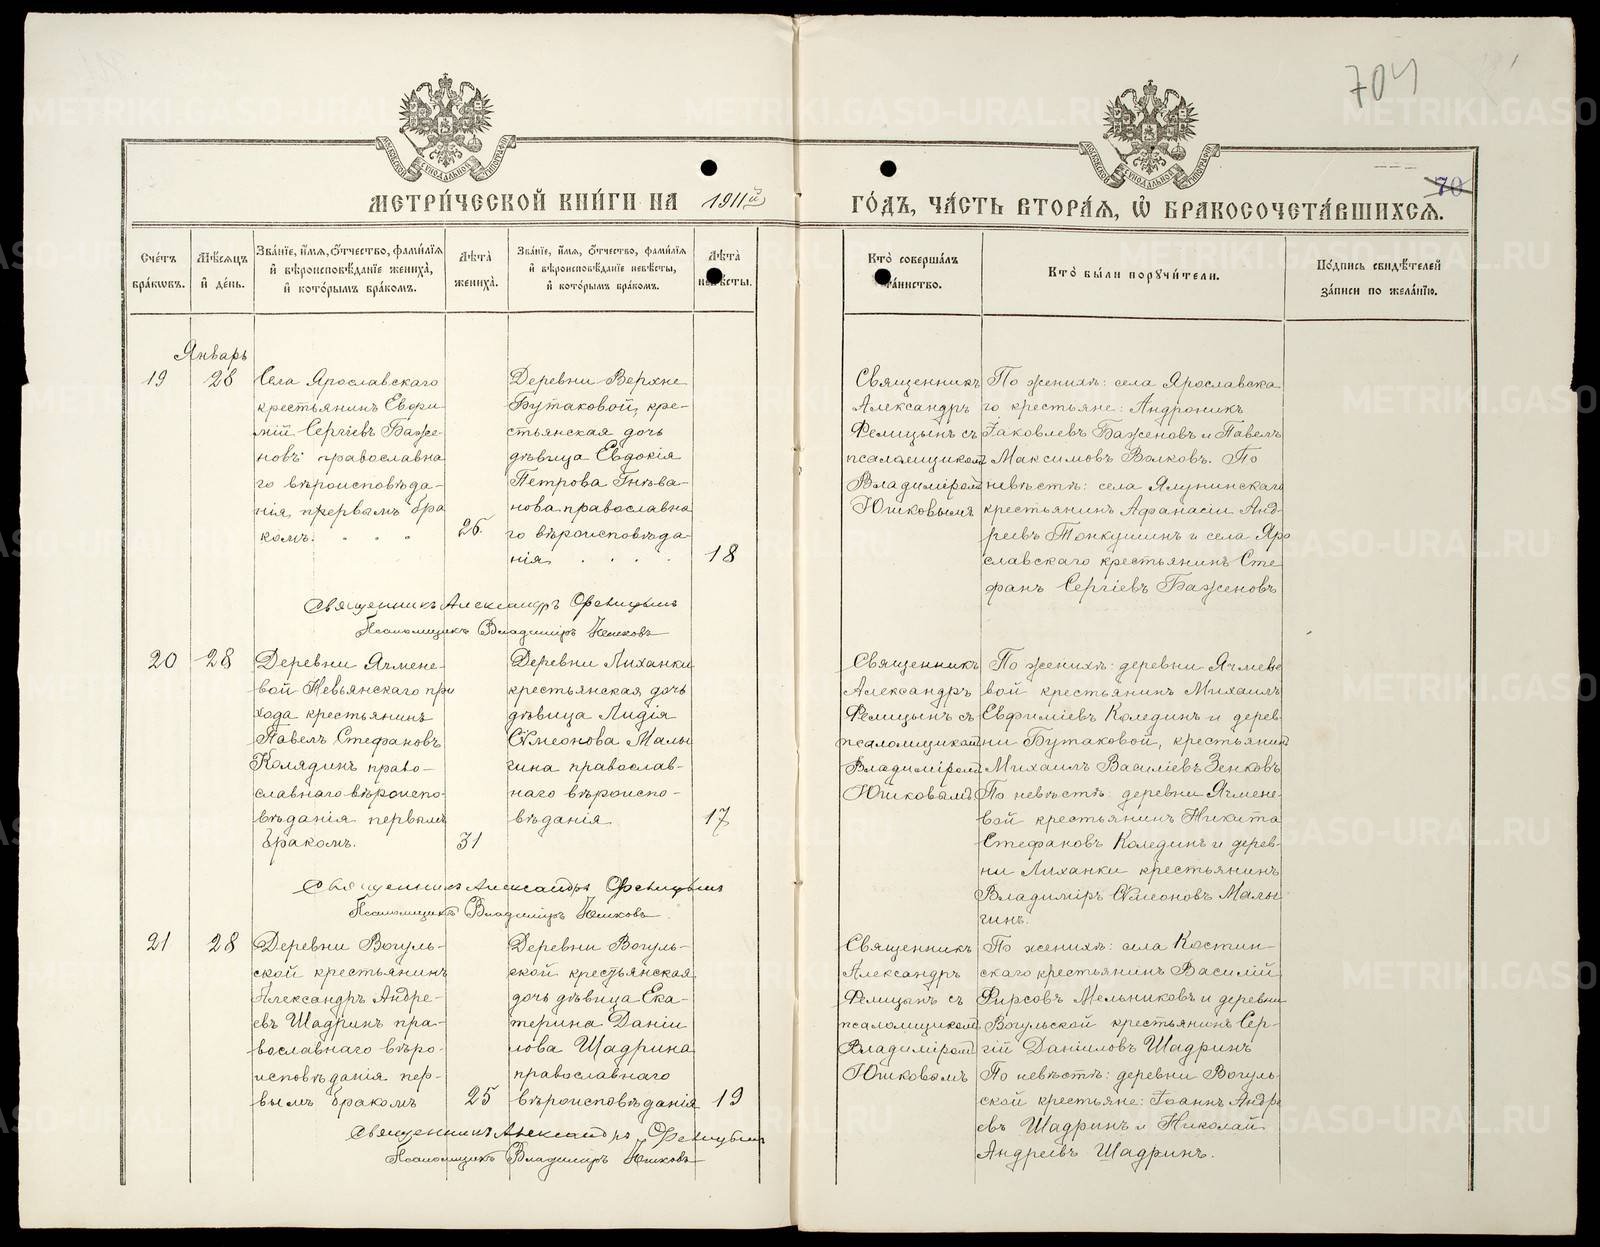 704
70
МЕТРИ́ЧЕСКОЙ КНИ́ГИ НА 1911й
ГО́ДЪ, ЧА́СТЬ ВТОРА́Я, Ѽ БРАКОСОЧЕТА́ВШИХСЯ.
Сче́тъ бра́кѡвъ.
Мѣ́сяцъ и҆ де́нь.
Зва́нїе, и҆́мя, ѻ҆́тчество, фами́лїя
и҆ вѣроисповѣ́данїе жениха̀,
и҆ кото́рымъ бра́комъ.
Лѣ́та жениха̀.
Зва́нїе, и҆́мя, ѻ҆́тчество, фами́лїя
и҆ вѣроисповѣ́данїе невѣ́сты,
и҆ кото́рымъ бра́комъ.
Лѣ́та невѣ́сты.
Кто̀ соверша́лъ та́инство.
Кто̀ бы́ли порꙋчи́тели.
По́дпись свидѣ́телей
за́писи по жела́нїю.
Январь
19
28
Села Ярославскаго
крестьянинъ Евфи-
мій Сергіевъ Баже-
новъ православна
го вѣроисповѣда-
нія, первымъ бра
комъ.
26
Деревни Верхне
Бутаковой, кре-
стьянская дочь
дѣвица Евдокія
Петрова Гнѣва-
нова православна
го вѣроисповѣда-
нія
18
Священникъ
Александръ
Фелицынъ съ
псаломщикомъ
Владиміромъ
Юшковымъ
По женихѣ: села Ярославска
го крестьяне: Андроникъ
Іаковлевъ Баженовъ и Павелъ
Максимовъ Волковъ. По
невѣстѣ: села Ялунинскаго
крестьянинъ Афанасій Анд-
реевъ Тонкушинъ и села Яро
славскаго крестьянинъ Сте
фанъ Сергіевъ Баженовъ
Священникъ Александръ Фелицынъ
Псаломщикъ Владиміръ Юшковъ
20
28
Деревни Ячмене-
вой Невьянскаго при
хода крестьянинъ
Павелъ Стефановъ
Колядинъ право-
славнаго вѣроиспо-
вѣданія первымъ
бракомъ.
31
Деревни Лиханки
крестьянская дочь
дѣвица Лидія
Сѵмеонова Малы
гина православ-
наго вѣроиспо-
вѣданія
17
Священникъ
Александръ
Фелицынъ съ
псаломщикомъ
Владиміромъ
Юшковымъ
По женихѣ: деревни Ячмене
вой крестьянинъ Михаилъ
Евфиміевъ Колединъ и дерев
ни Бутаковой, крестьянинъ
Михаилъ Василіевъ Зенковъ
По невѣстѣ: деревни Ячмене-
вой крестьянинъ Никита
Стефановъ Колединъ и дерев-
ни Лиханки крестьянинъ
Владиміръ Сѵмеоновъ Малы
гинъ.
Священникъ Александръ Фелицынъ
Псаломщикъ Владиміръ Юшковъ
21
28
Деревни Вогуль-
ской крестьянинъ
Александръ Андре-
евъ Шадринъ пра-
вославнаго вѣро-
исповѣданія пер-
вымъ бракомъ
25
Деревни Вогуль-
ской крестьянская
дочь дѣвица Ека-
терина Даніи
лова Шадрина
православнаго
вѣроисповѣданія
19
Священникъ
Александръ
Фелицынъ съ
псаломщикомъ
Владиміромъ
Юшковымъ
По женихѣ: села Костин-
скаго крестьянинъ Василій
Фирсовъ Мельниковъ и деревни
Вогульской крестьянинъ Сер-
гій Даніиловъ Шадринъ
По невѣстѣ: деревни Вогуль-
ской крестьяне: Іоаннъ Андре
евъ Шадринъ и Николай
Андреевъ Шадринъ.
Священникъ Александръ Фелицынъ
Псаломщикъ Владиміръ Юшковъ
METRIKI.GASO-URAL.RU